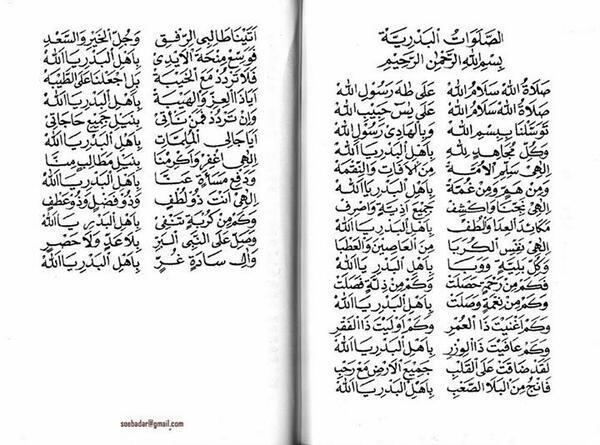 الصَّلَوَاتُ الْبَدْرِيَّةُ
بِسْمِ اللهِ الرَّحْمٰنِ الرَّحِيْمِ
صَلَاةُ اللهْ سَلَامُ اللهْ عَلَى طٰهَ رَسُوْلِ اللهْ
صَلَاةُ اللهْ سَلَامُ اللهْ عَلَى يٰسٓ حَبِيْبِ اللهْ
تَوَسَّلْنَا بِبِسْمِ اللهْ وَبِالْهَادِىْ رَسُوْلِ اللهْ
وَكُلِّ مُجَاهِدٍ لِلّٰهِ بِاَهْلِ الْبَدْرِ يَا اَللهْ
اِلٰهِىْ سَلِّمِ الْاُمَّةْ مِنَ الْاٰفَاتِ وَالنِّقْمَةْ
وَمِنْ هَمٍّ وَمِنْ غُمَّةْ بِاَهْلِ الْبَدْرِ يَا اَللهْ
اِلٰهِىْ نَجِّنَا وَاكْشِفْ جَمِيْعَ اَذِيَّةٍ وَاصْرِفْ
مَكَائِدَ الْعِدَا وَالْطُفْ بِاَهْلِ الْبَدْرِ يَا اَللهْ
اِلٰهِىْ نَفِّسِ الْكُرَبَا مِنَ الْعَاصِيْنَ وَالْعَطْبَا
وَكُلَّ بَلِيَّةٍ وَوَبَا بِاَهْلِ الْبَدْرِ يَا اَللهْ
فَكَمْ مِنْ رَحْمَةٍ حَصَلَتْ وَكَمْ مِنْ ذِلَّةٍ فَصَلَتْ
وَكَمْ مِنْ نِعْمَةٍ وَصَلَتْ بِاَهْلِ الْبَدْرِ يَا اَللهْ
وَكَمْ اَغْنَيْتَ ذَا الْعُمْرِ وَكَمْ اَوْلَيْتَ ذَا الْفَقْرِ
وَكَمْ عَافَيْتَ ذَا الْوِزْرِ بِاَهْلِ الْبَدْرِ يَا اَللهْ
لَقَدْ ضَاقَتْ عَلَى الْقَلْبِ جَمِيْعُ الْاَرْضِ مَعْ رَحْبِ
فَانْجِ مِنَ الْبَلَا الصَّعْبِ بِاَهْلِ الْبَدْرِ يَا اَللهْ
اَتَيْنَا طَالِبِى الرِّفْقِ وَجُلِّ الْخَيْرِ وَالسَّعْدِ
فَوَسِّعْ مِنْحَةَ الْاَيْدِىْ بِاَهْلِ الْبَدْرِ يَا اَللهْ
فَلَا تَرْدُدْ مَعَ الْخَيْبَةْ بَلِ اجْعَلْنَا عَلَى الطَّيْبَةْ
اَيَا ذَا الْعِزِّ وَالْهَيْبَةْ بِاَهْلِ الْبَدْرِ يَا اَللهْ
وَاِنْ تَرْدُدْ فَمَنْ نَأْتِىْ بِنَيْلِ جَمِيْعِ حَاجَاتِىْ
اَيَا جَالِى الْمُلِمَّاتِ بِاَهْلِ الْبَدْرِ يَا اَللهْ
اِلٰهِى اغْفِرْ وَاَكْرِمْنَا بِنَيْلِ مَطَالِبٍ مِنَّا
وَدَفْعِ مَسَاءَةٍ عَنَّا بِاَهْلِ الْبَدْرِ يَا اَللهْ
اِلٰهِىْ اَنْتَ ذُوْ لُطْفٍ وَذُوْ فَضْلٍ وَذُوْ عَطْفٍ
وَكَمْ مِنْ كُرْبَةٍ تَنْفِىْ بِاَهْلِ الْبَدْرِ يَا اَللهْ
وَصَلِّ عَلَى النَّبِى الْبَرِّ بِلَا عَدٍّ وَلَا حَصْرٍ
وَاٰلِ سَادَةٍ غُرٍّ بِاَهْلِ الْبَدْرِ يَا اَللهْ
soebadar@gmail.com